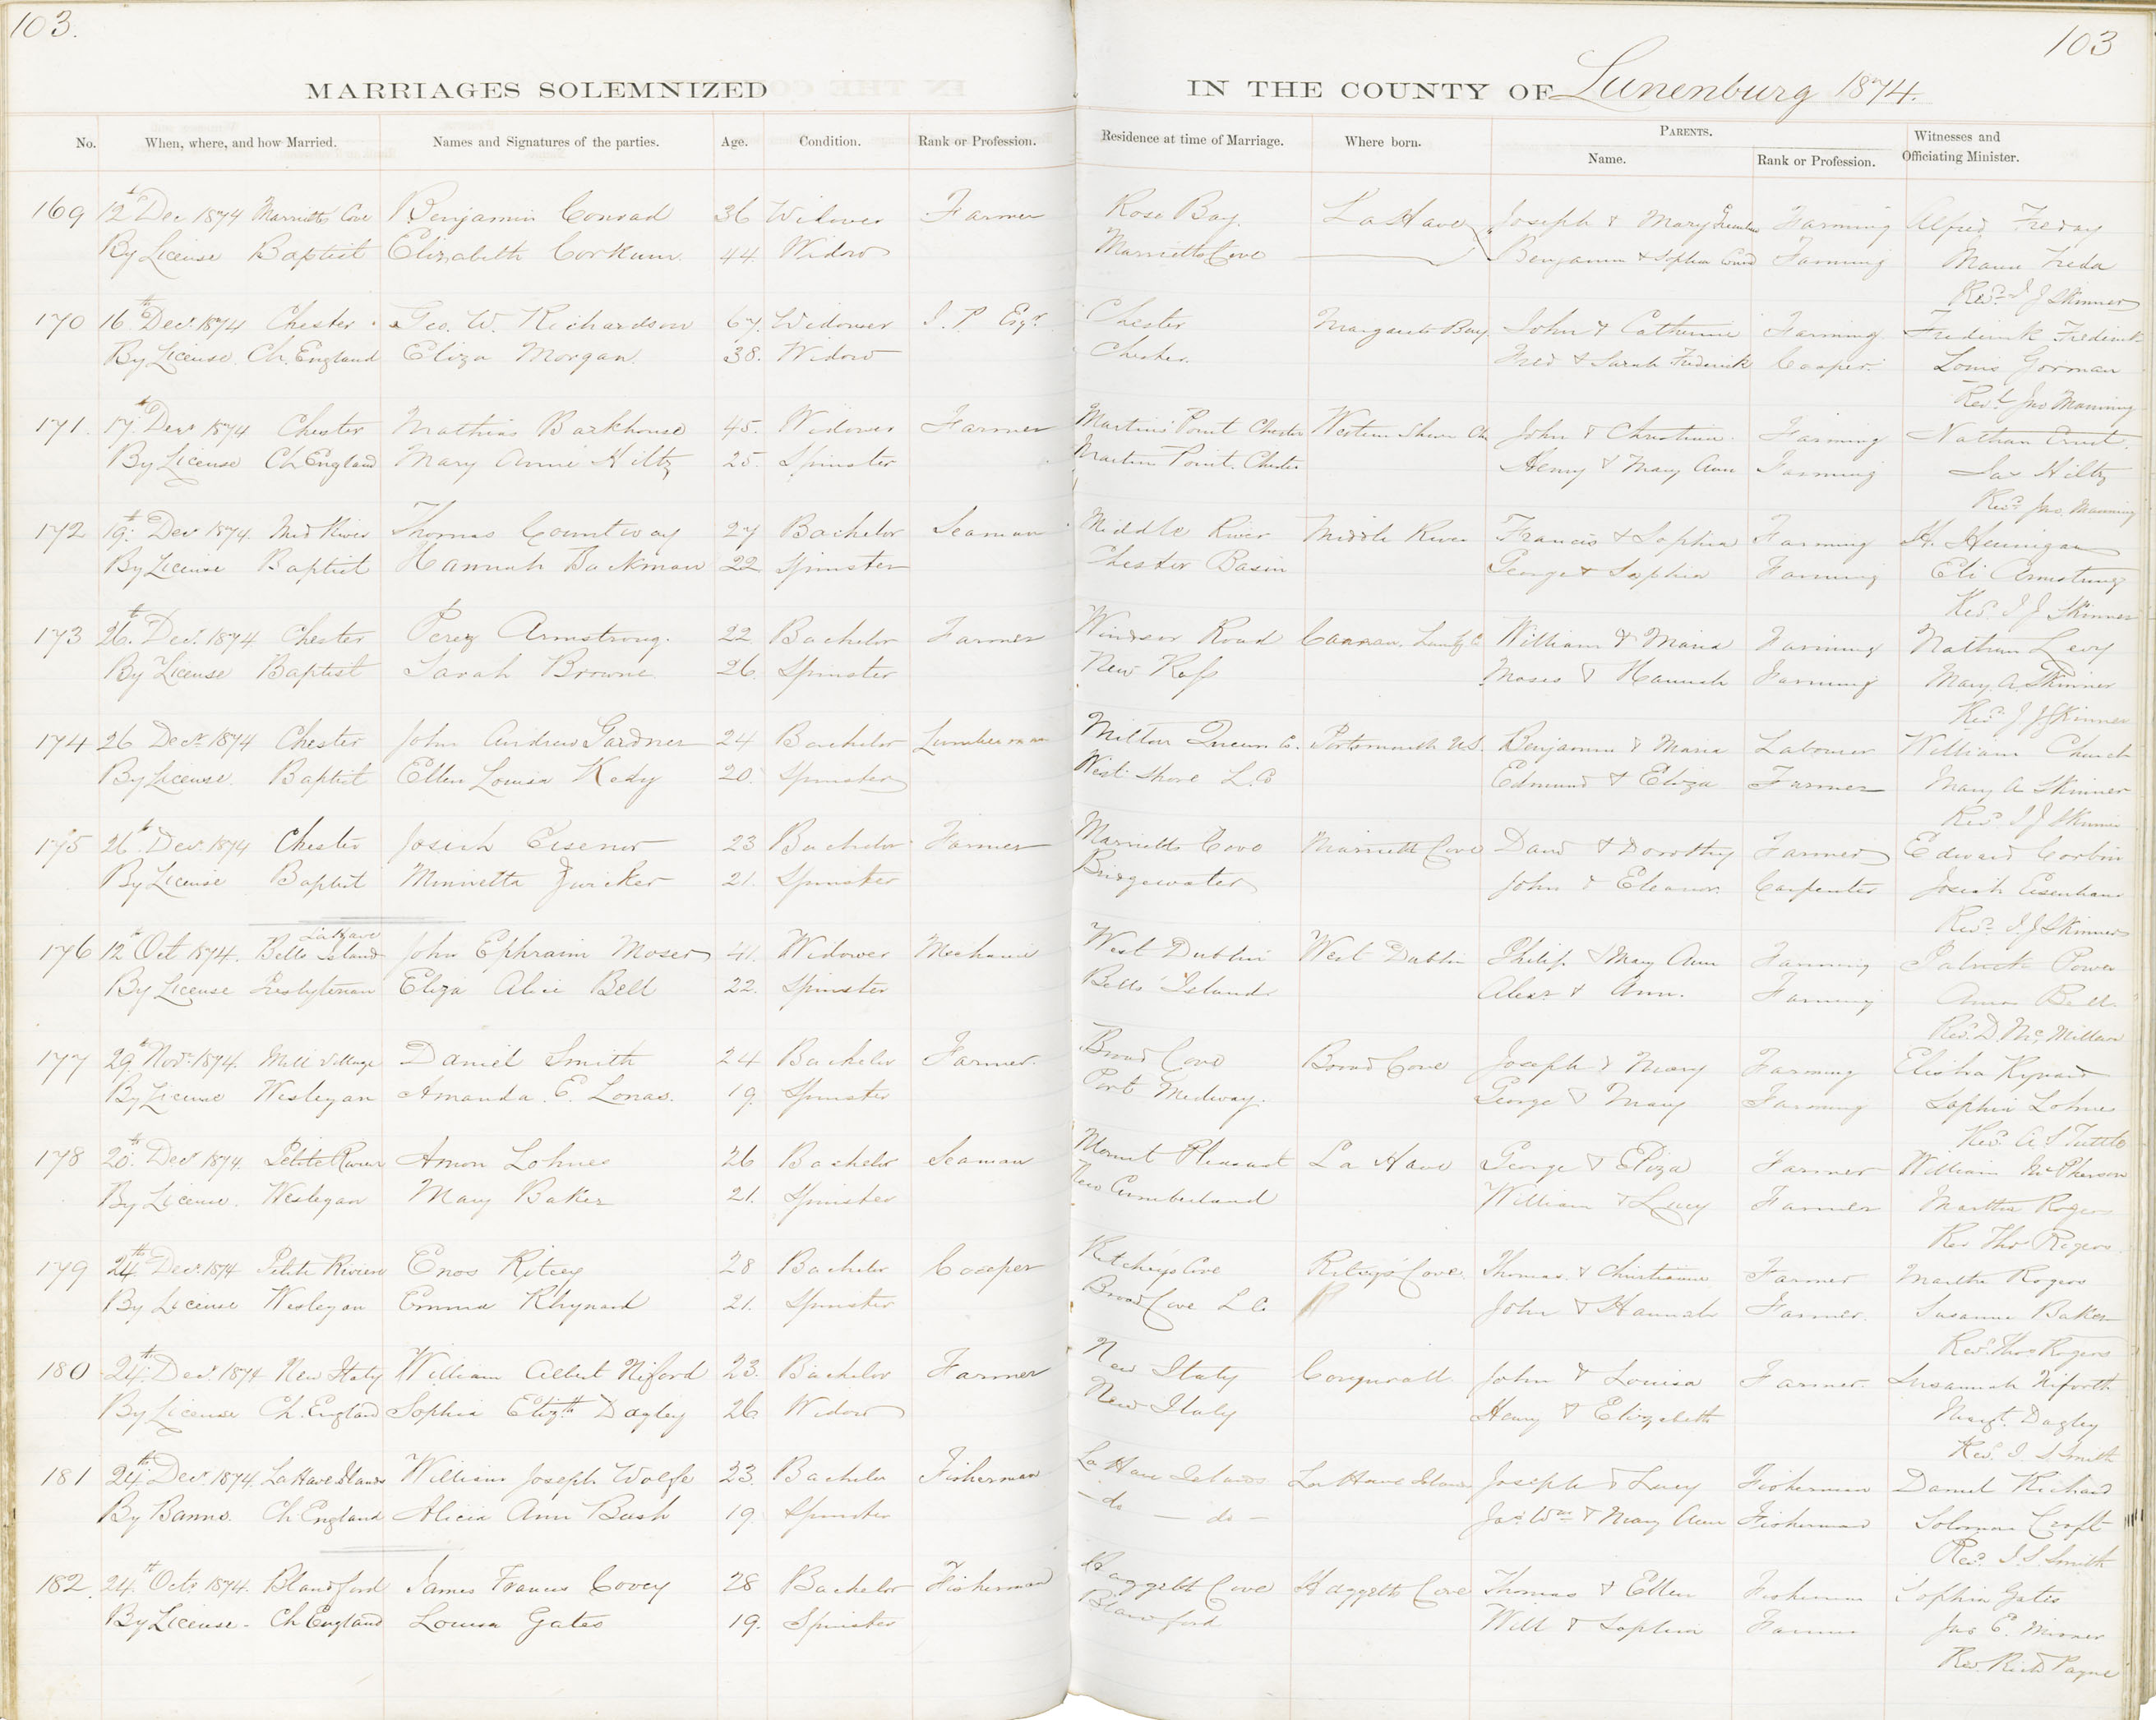 103.
103
MARRIAGES SOLEMNIZED IN THE COUNTY OF Lunenburg 1874.
No. When, where, and how Married. Names and Signatures of the parties. Age. Condition. Rank or Profession. Residence at time of Marriage. Where born. PARENTS. Name. Rank or Profession. Witnesses and Officiating Minister.
169 12th Dec 1874 Marriotts Cove Benjamin Conrad 36 Widower Farmer Rose Bay. La Have Joseph & Mary Farming Alfred Freday
By License Baptist Elizabeth Corkum 44. Widow Marriotts Cove Benjamin & Sophia Farming Freda
Revd. I J Skinner
170 16th Decr. 1874 Chester Geo. W. Richardson 67. Widower J. P. Esqr. Chester Margarets Bay. John & Catherine Farming Frederick Frederick
By License Ch. England Eliza Morgan. 38. Widow Chester. Fred & Sarah Frederick Cooper. Louis Gorman
Revd. Jno Manning
171. 17th Decr 1874 Chester Mathias Barkhouse 45. Widower Farmer Martins Point Chester Western Shore Ch John & Christina. Farming Nathan Ernst.
By License Ch England Mary Annie Hiltz 25. Spinster Martins Point. Chester Henry & Mary Ann Farming Jas Hiltz
Revd. Jno. Manning
172 19th Decr 1874. Mid River Thomas Countway 27 Bachelor Seaman Middle River Middle River Francis & Sophia Farming H. Hennigar
By License Baptist Hannah Backman 22 Spinster Chester Basin George & Sophia Farming Eli Armstrong
Revd. I J Skinner
173 26th. Decr. 1874 Chester Perez Armstrong. 22. Bachelor Farmer Windsor Road Canaan. William & Maria Farming Nathan Levy
By License Baptist Sarah Browne 26. Spinster New Ross Moses & Hannah Farming Mary. A. Skinner
Revd. I J Skinner
174 26 Decr. 1874 Chester John Andrew Gardner 24 Bachelor Lumberman Milton Queens Co. Portsmouth U.S. Benjamin & Maria Labourer William Church
By License. Baptist Ellen Louisa Kedy 20. Spinster West Shore L. Co Edmund & Eliza Farmer Mary A Skinner
Revd. I J Skinner
175 26th Decr. 1874 Chester Josiah Eisenor 23 Bachelor Farmer Marriotts Cove Marriotts Cove David & Dorothy Farmer Edward Corbin
By License Baptist Minnetta Zwicker 21. Spinster Bridgewater John & Eleanor. Carpenter Josiah Eisenhaur
Revd. I. J Skinner
LaHave
176 12th Oct 1874. Bells Island John Ephraim Moser 41. Widower Mechanic West Dublin West Dublin Philip & Mary Ann Farming Patrick Power
By License Presbyterian Eliza Alice Bell 22. Spinster Bells Island Alexr & Ann. Farming Amos Bell.
Revd. D. McMillan
177 29th Novr. 1874. Mill Village Daniel Smith 24 Bachelor Farmer. Broad Cove Broad Cove Joseph & Mary Farming Elisha Rynard
By License Wesleyan Amanda. E. Lonas. 19. Spinster Port Medway. George & Mary Farming Sophia Lohnes
Revd. A S Tuttle
178 20th. Decr 1874. Petite Riviere Amon Lohnes 26 Bachelor Seaman Mount Pleasant La Have George & Eliza Farmer William McPherson
By License. Wesleyan Mary Baker 21. Spinster New Cumberland William & Lucy Farmer Martha Rogers
Rev Thos Rogers
179 24th Decr. 1874 Petite Riviere Enos Ritcey 28 Bachelor Cooper Ritcheys Cove Ritceys Cove. Thomas. & Christianna Farmer Martha Rogers
By License Wesleyan Emma Rhynard 21. Spinster Broad Cove L C. John & Hannah Farmer. Susanna Baker
Revd. Thos Rogers
180 24th. Decr. 1874 New Italy William Albert Niford 23. Bachelor Farmer New Italy Conquerall John & Louisa Farmer. Susannah Niforth
By License Ch. England Sophia Elizth Dagley 26 Widow New Italy Henry & Elizabeth Margt. Dagley
Revd. I. S Smith
181 24th. Decr. 1874. LaHave Islands William Joseph Wolfe 23. Bachelor Fisherman La Have Islands La Have Islands Joseph & Lucy Fisherman Daniel Richard
By Banns. Ch England Alicia Ann Bush 19. Spinster — do — do — Jas. Wm & Mary Ann Fisherman Solomon Croft
Revd. I. S. Smith
182. 24th Octr. 1874. Blandford James Francis Covey 28 Bachelor Fisherman Haggetts Cove Haggetts Cove Thomas & Ellen Fisherman Sophia Gates
By License. Ch England Louisa Gates 19. Spinster Blandford Will & Sophia Farmer Jas E. Misner
Rev. Richd Payne